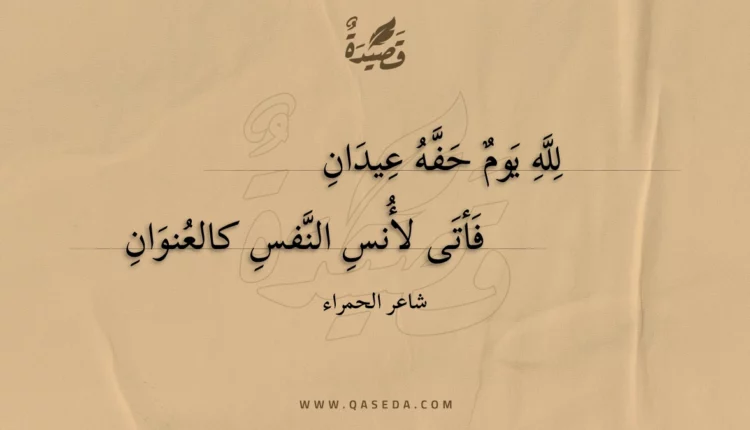 قَصِيدَةٌ
لِلَّهِ يَومٌ حَفَّهُ عِيدَانِ
فَأتَى لأُنسِ النَّفسِ كالعُنوَانِ
شاعر الحمراء
WWW.QASEDA.COM